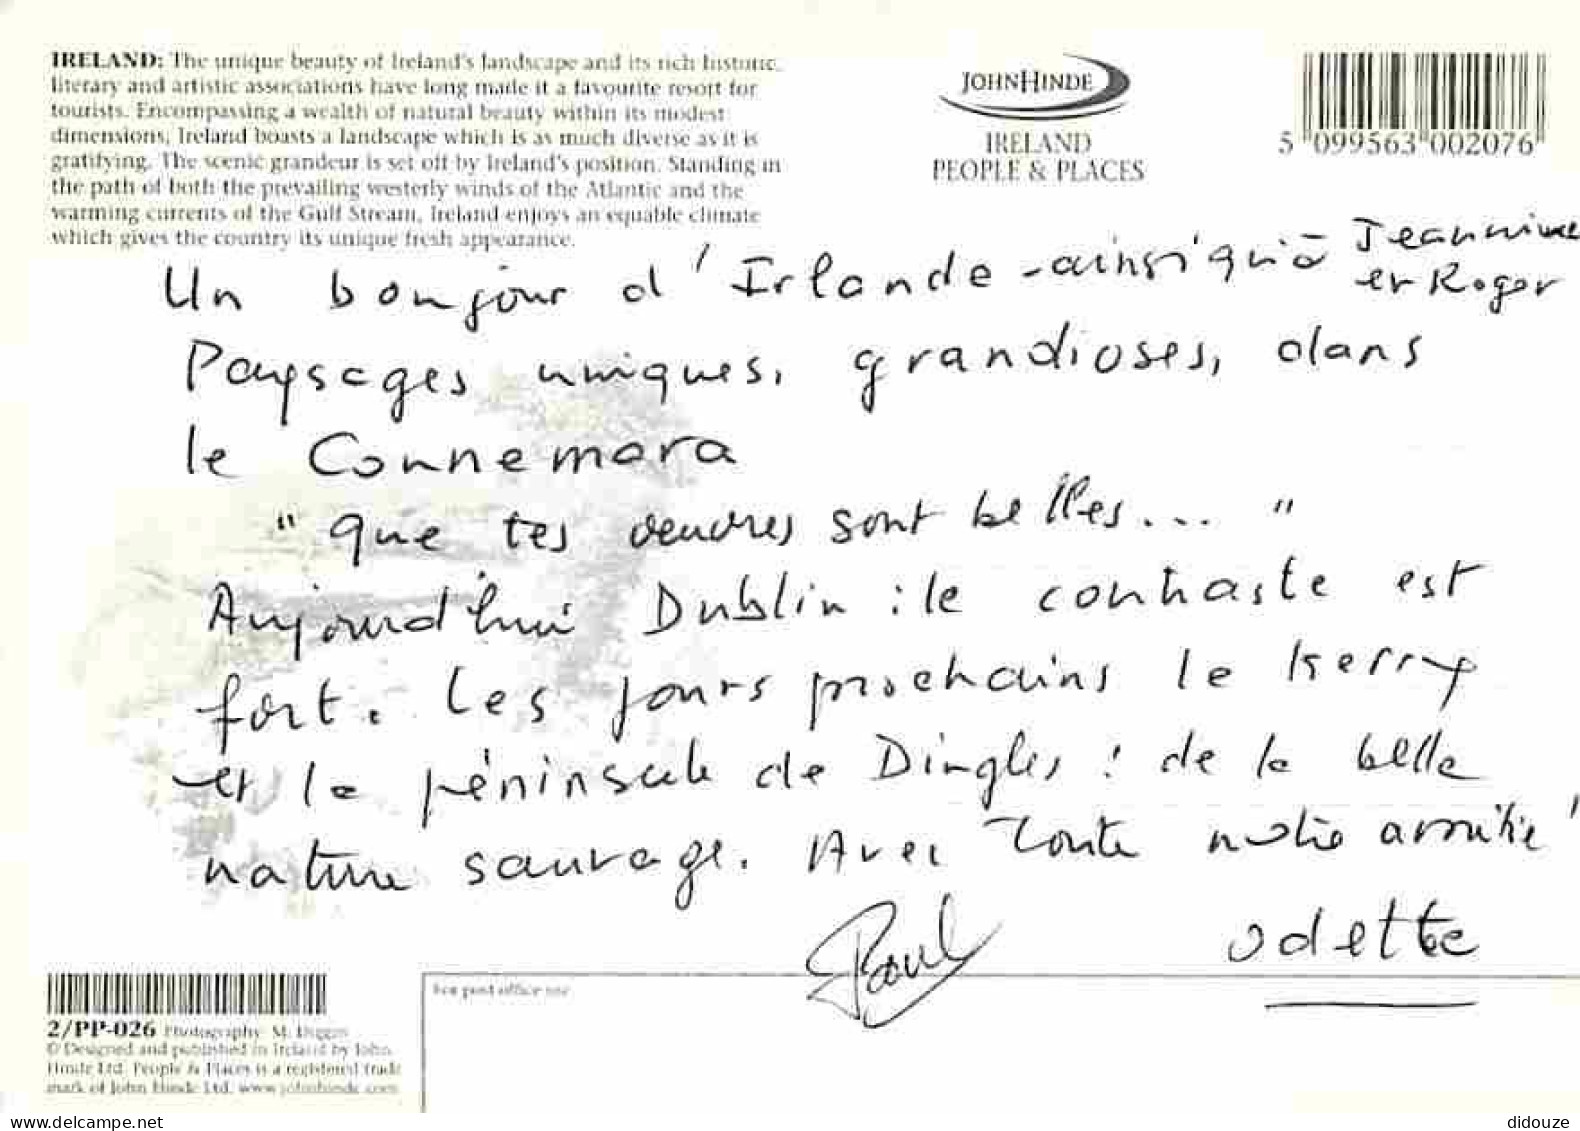 IRELAND: The unique beauty of Ireland's landscape and its rich historic,
literary and artistic associations have long made it a favourite resort for
tourists. Encompassing a wealth of natural beauty within its modest
dimensions, Ireland boasts a landscape which is as much diverse as it is
gratifying. The scenic grandeur is set off by Ireland's position. Standing in
the path of both the prevailing westerly winds of the Atlantic and the
warming currents of the Gulf Stream, Ireland enjoys an equable climate
which gives the country its unique fresh appearance.
JOHNHINDE
IRELAND
PEOPLE & PLACES
5 099563 002076
Un bonjour d'Irlande - ainsi qu'à Jeannine
et Roger
Paysages uniques, grandioses, dans
le Connemara
" que tes sont belles... "
Aujourd'hui Dublin : le contraste est
fort. Les jours prochains le Kerry
et la péninsule de Dingles : de la belle
nature sauvage. Avec toute notre amitié !
Paul
odette
For post office use
2/PP-026 Photography: M. Diggin
© Designed and published in Ireland by John
Hinde Ltd. People & Places is a registered trade
mark of John Hinde Ltd. www.johnhinde.com
www.delcampe.net
didouze